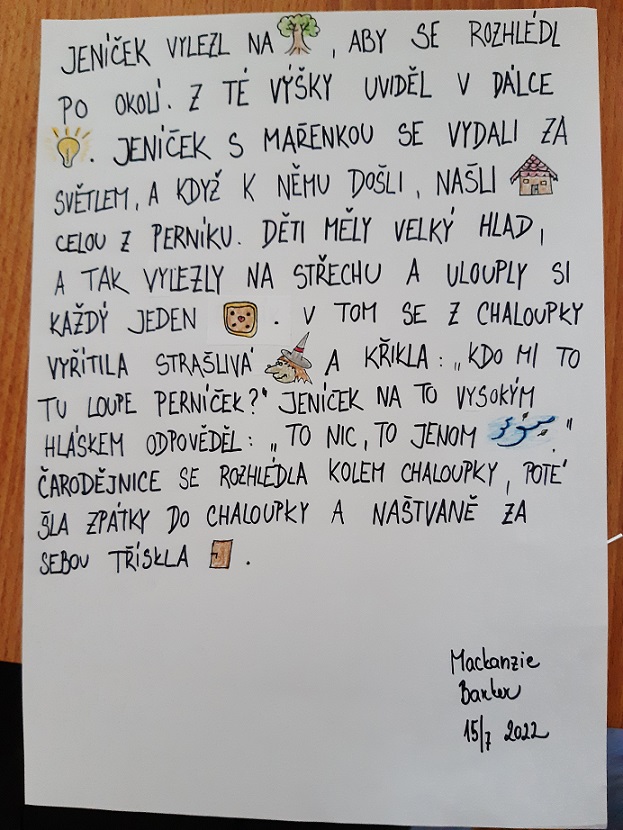 JENÍČEK VYLEZL NA , ABY SE ROZHLÉDL
PO OKOLÍ. Z TÉ VÝŠKY UVIDĚL V DÁLCE
. JENÍČEK S MAŘENKOU SE VYDALI ZA
SVĚTLEM, A KDYŽ K NĚMU DOŠLI, NAŠLI
CELOU Z PERNÍKU. DĚTI MĚLY VELKÝ HLAD,
A TAK VYLEZLY NA STŘECHU A ULOUPLY SI
KAŽDÝ JEDEN . V TOM SE Z CHALOUPKY
VYŘÍTILA STRAŠLIVÁ A KŘIKLA: „KDO MI TO
TU LOUPE PERNÍČEK?" JENÍČEK NA TO VYSOKÝM
HLÁSKEM ODPOVĚDĚL: „TO NIC, TO JENOM ."
ČARODĚJNICE SE ROZHLÉDLA KOLEM CHALOUPKY, POTÉ
ŠLA ZPÁTKY DO CHALOUPKY A NAŠTVANĚ ZA
SEBOU TŘÍSKLA .
Mackanzie
Baxter
15/7 2022